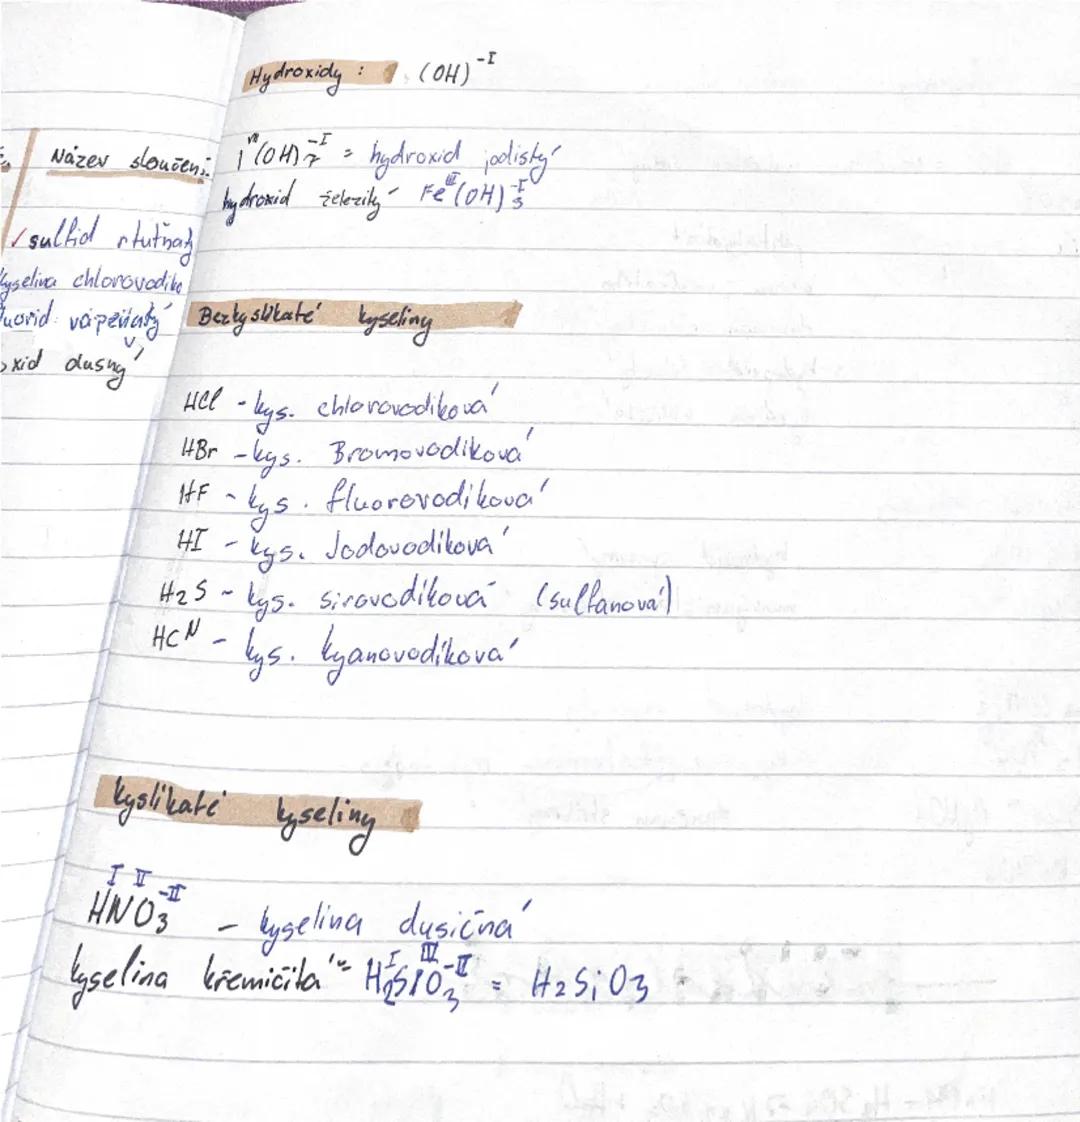 Hydroxidy : (OH)⁻ᴵ
Název sloučeni
I^VII(OH)₇^-I = hydroxid jodistý
hydroxid železitý Fe^III(OH)₃^-I
✓ sulfid rtuťnatý
kyselina chlorovodíko
fluorid vápenatý
oxid dusný
Bezkyslíkaté kyseliny
HCl - kys. chlorovodíková
HBr - kys. Bromovodíková
HF - kys. fluorovodíková
HI - kys. Jodovodíková
H₂S - kys. sirovodíková (sulfanová)
HCN - kys. kyanovodíková
kyslíkaté kyseliny
I II -II
HNO₃ - kyselina dusičná
kyselina křemičitá = H₂^I Si^III O₃^-II = H₂SiO₃